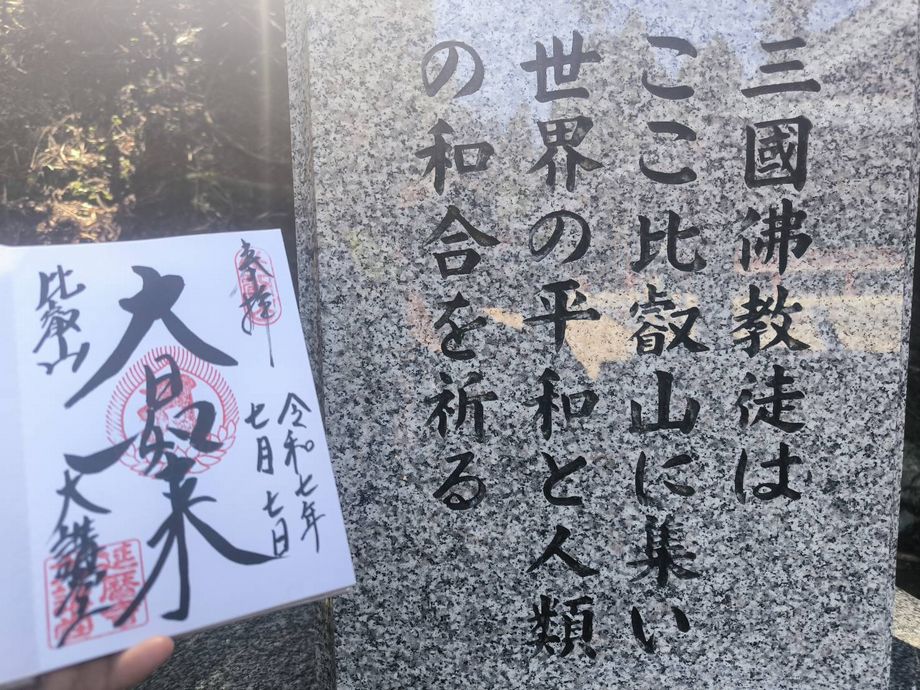 三國佛教徒は
ここ比叡山に集い
世界の平和と人類
の和合を祈る
奉拝
令和七年
七月七日
大日如来
比叡山
大講堂
延暦寺